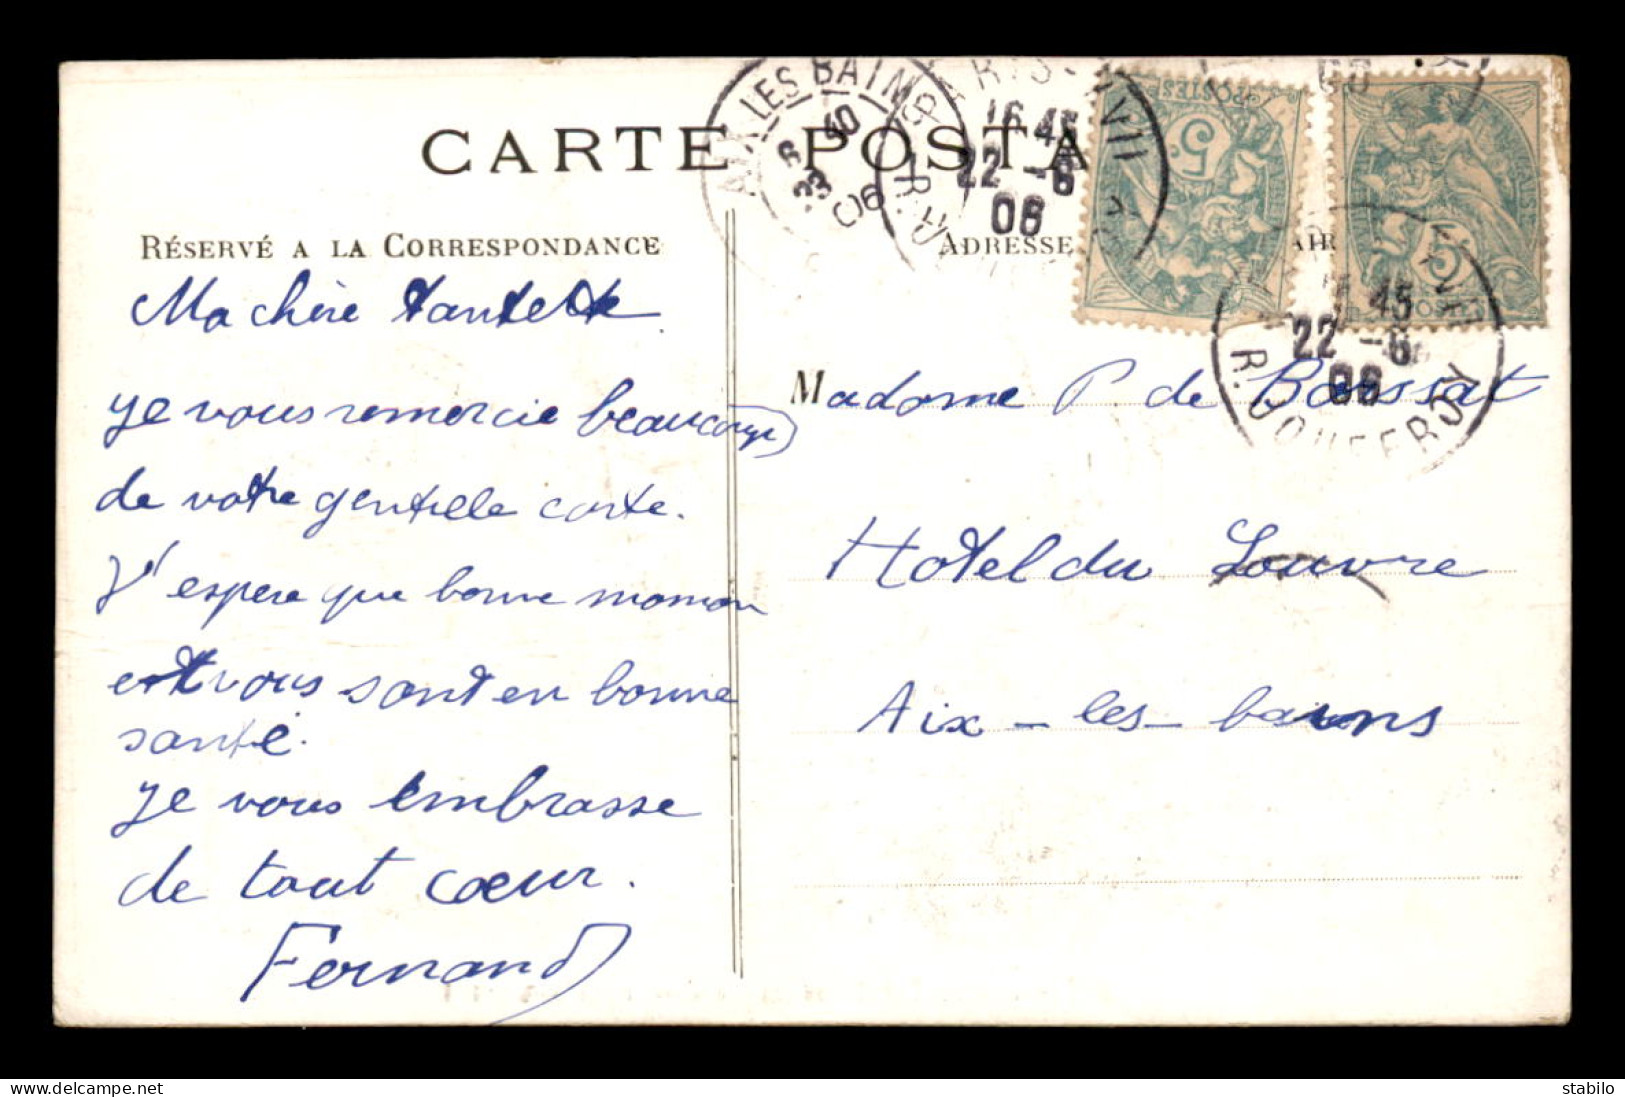 CARTE POSTA
RÉSERVÉ A LA CORRESPONDANCE
ADRESSE
AIX LES BAINS
6 40
23
06
16 45
22 -6
06
R. JOUFFROY
45
22 -6
06
5c
POSTES
5c
POSTES
Ma chère tante
je vous remercie beaucoup
de votre gentille carte.
J'espere que bonne maman
et vous sont en bonne
santé.
Je vous embrasse
de tout cœur.
Fernand
Madame P. de Boissat
Hotel du Louvre
Aix-les-bains
stabilo